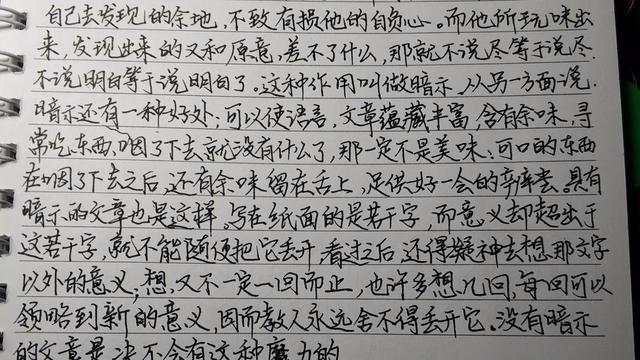 自己去发现的余地,不致有损他的自负心。而他所玩味出
来,发现出来的又和原意,差不了什么,那就不说尽等于说尽.
不说明白等于说明白了。这种作用叫做暗示.从另一方面说.
暗示还有一种好处:可以使语言,文章蕴藏丰富,含有余味,寻
常吃东西,咽了下去就没有什么了,那一定不是美味.可口的东西
在咽了下去之后,还有余味留在舌上,足供好一会的辨尝。具有
暗示的文章也是这样.写在纸面的是若干字,而意义却超出于
这若干字,就不能随便把它丢开,看过之后,还得凝神去想那文字
以外的意义;想,又不一定一回而止,也许多想几回,每回可以
领略到新的意义,因而教人永远舍不得丢开它。没有暗示
的文章是决不会有这种魔力的